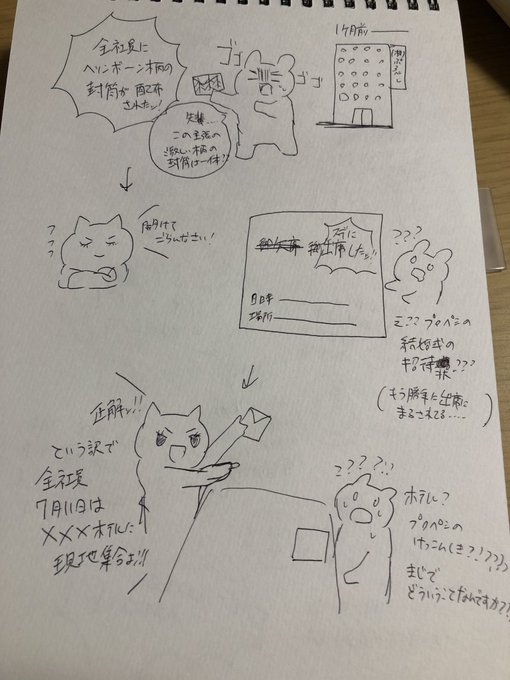 1ヶ月前
全社員に
ヘリンボーン柄の
封筒が配布
されたッ!
ゴゴ
ゴゴ
先輩…
この主張の
激しい柄の
封筒は一体?
フフフ
開けて
ごらんなさい!
すでに
出席したッ!!
日時
場所
???
え??プロペシの
結婚式の
招待状???
(もう勝手に出席に
まるされてる……)
正解ッ!!
という訳で
全社員
7月11日は
×××ホテルに
現地集合よ!!
????!!
ホテル?
プロペシの
けっこんしき?!????
まじで
どういうことなんですか??